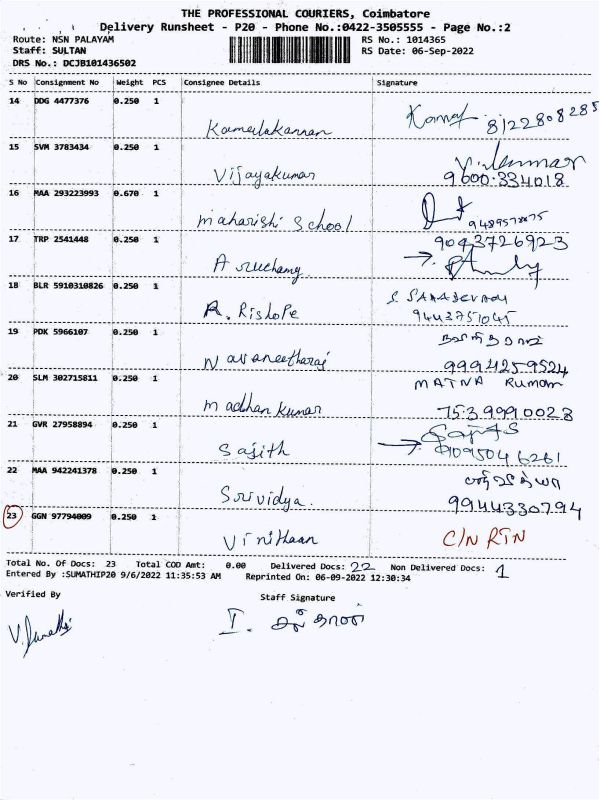 THE PROFESSIONAL COURIERS, Coimbatore
Delivery Runsheet - P20 - Phone No.:0422-3505555 - Page No.:2
Route: NSN PALAYAM RS No.: 1014365
Staff: SULTAN RS Date: 06-Sep-2022
DRS No.: DCJB101436502
S No Consignment No Weight PCS Consignee Details Signature
14 DDG 4477376 0.250 1
Kamalakannan Kamal 8122808285
15 SVM 3783434 0.250 1
Vijayakumar 9600334018
16 MAA 293223993 0.670 1
Maharishi School
17 TRP 2541448 0.250 1 9043726923
A ruchamy
18 BLR 5910310826 0.250 1
R. Rishope 9443751045
19 PDK 5966107 0.250 1
Navaneetharaj 9994259524
20 SLM 302715811 0.250 1
Madhan Kumar 7539990028
21 GVR 27958894 0.250 1
Sajith 9095046261
22 MAA 942241378 0.250 1
Srividya. 9944330794
23 GGN 97794009 0.250 1
Vinithaan C/N RTN
Total No. Of Docs: 23 Total COD Amt: 0.00 Delivered Docs: 22 Non Delivered Docs: 1
Entered By :SUMATHIP20 9/6/2022 11:35:53 AM Reprinted On: 06-09-2022 12:30:34
Verified By Staff Signature
I. சுல்தான்